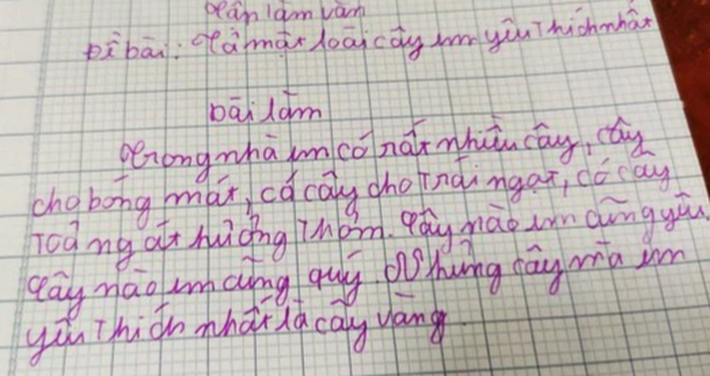 Tập làm văn
Đề bài: Tả một loài cây em yêu thích nhất
Bài làm
Trong nhà em có rất nhiều cây, cây
cho bóng mát, có cây cho trái ngọt, có cây
toả ngát hương thơm. Cây nào em cũng yêu.
Cây nào em cũng quý. Nhưng cây mà em
yêu thích nhất là cây vàng